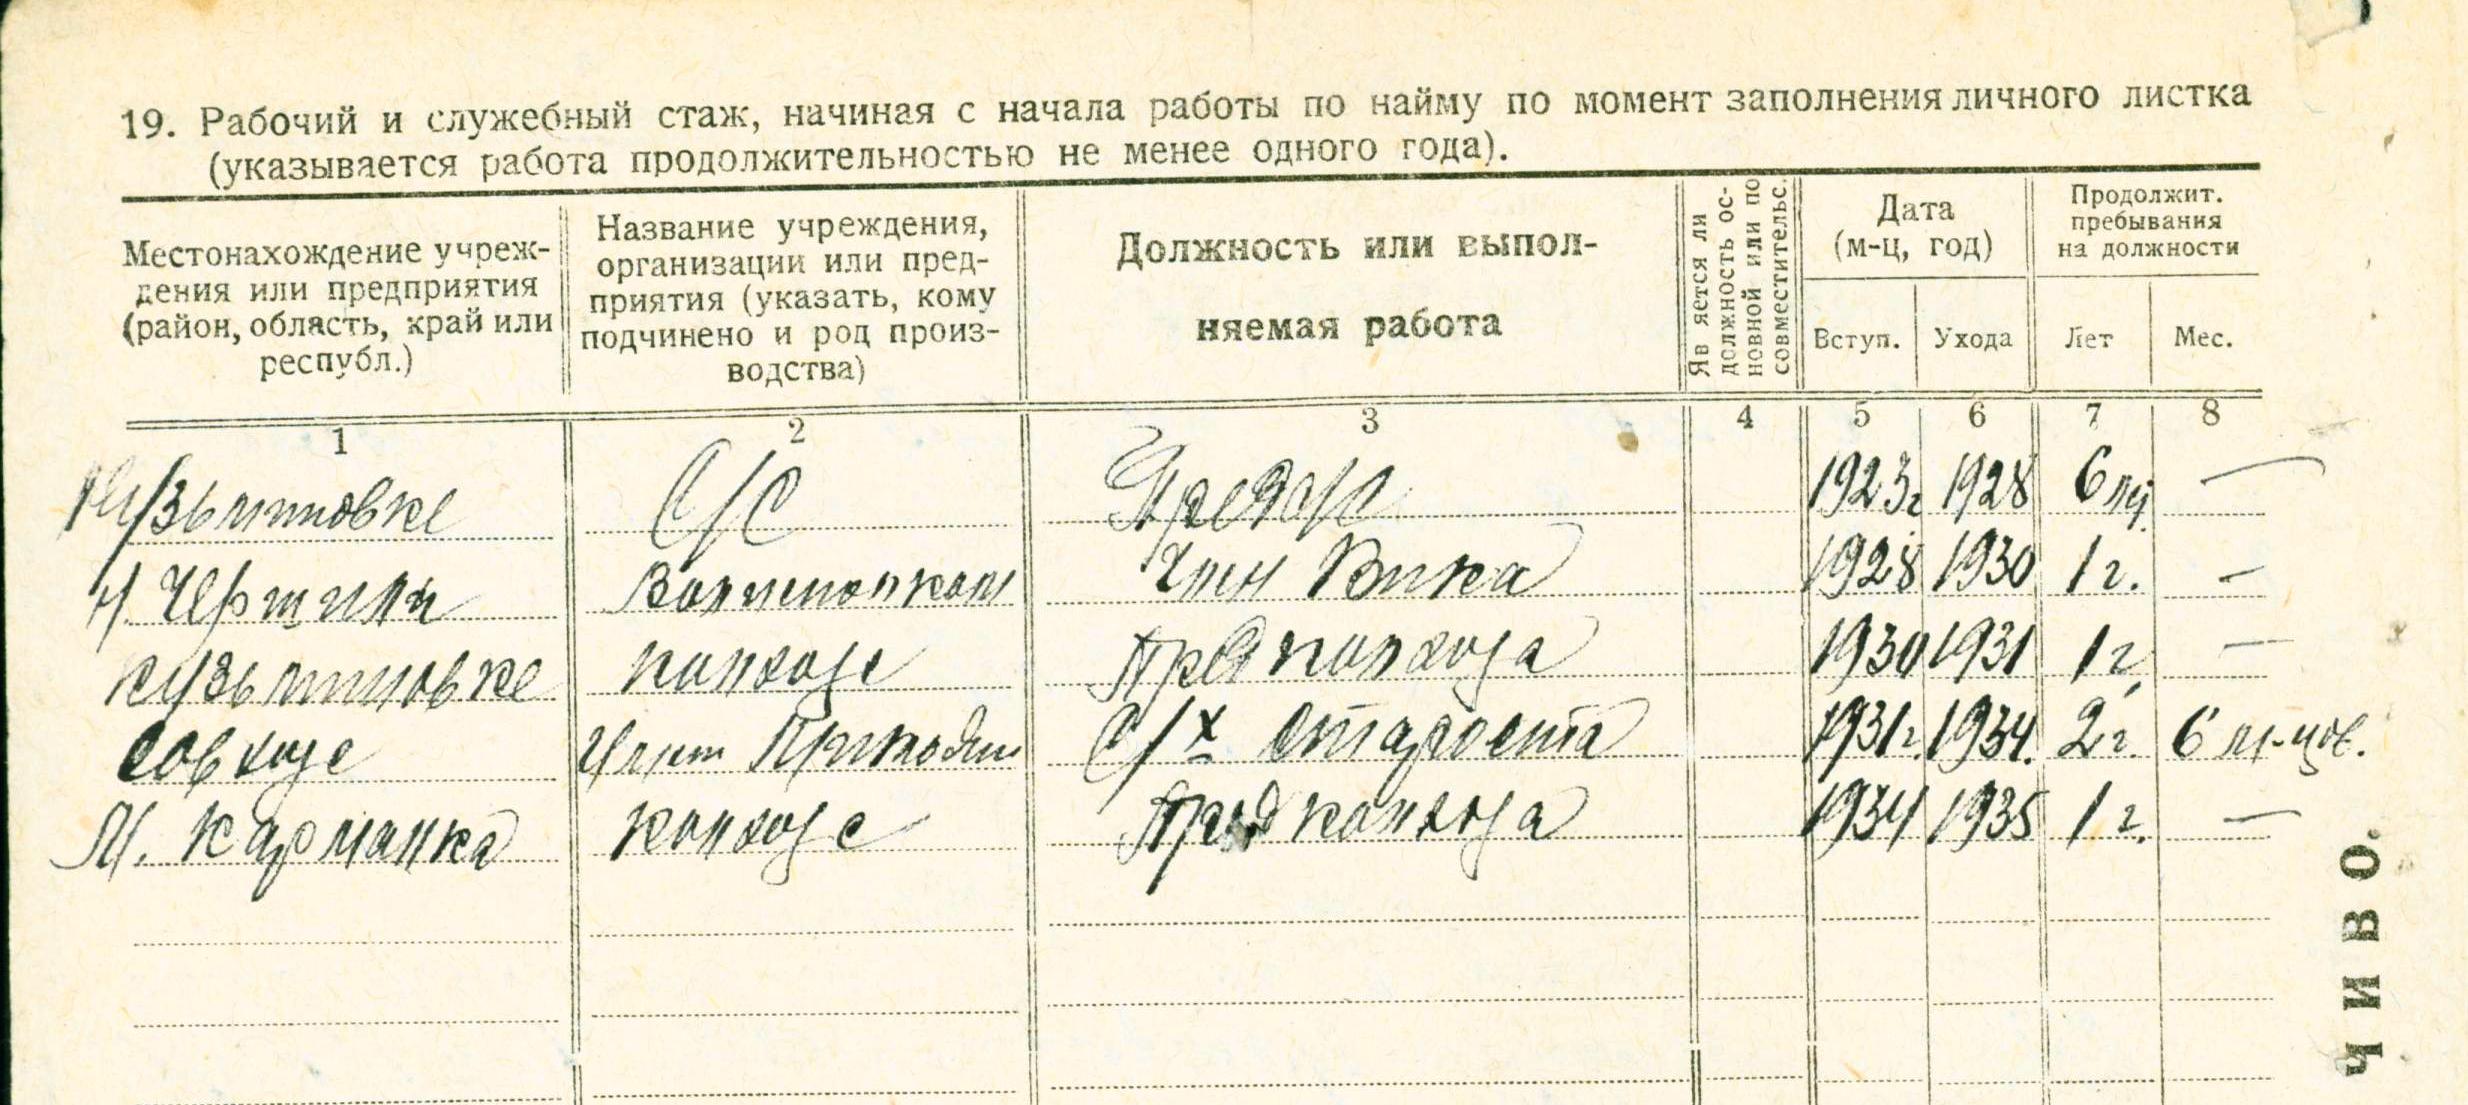 19. Рабочий и служебный стаж, начиная с начала работы по найму по момент заполнения личного листка
(указывается работа продолжительностью не менее одного года).
Местонахождение учреж-
дения или предприятия
(район, область, край или
республ.)
Название учреждения,
организации или пред-
приятия (указать, кому
подчинено и род произ-
водства)
Должность или выпол-
няемая работа
Яв яется ли
должность ос-
новной или по
совместительс.
Дата
(м-ц, год)
Вступ. Ухода
Продолжит.
пребывания
на должности
Лет Мес.
1 2 3 4 5 6 7 8
Кузьминовке С/С Пред с/с 1923г 1928 6 —
Н. Чершилы Волисполком Член Вика 1928 1930 1 г. —
Кузьминовке колхозе Пред колхоза 1930 1931 1 г. —
Совхозе С/х староста 1931г. 1934. 2 г. 6 м-цов.
М. Карманка колхозе Пред колхоза 1934 1935 1 г. —
ЧИВО.